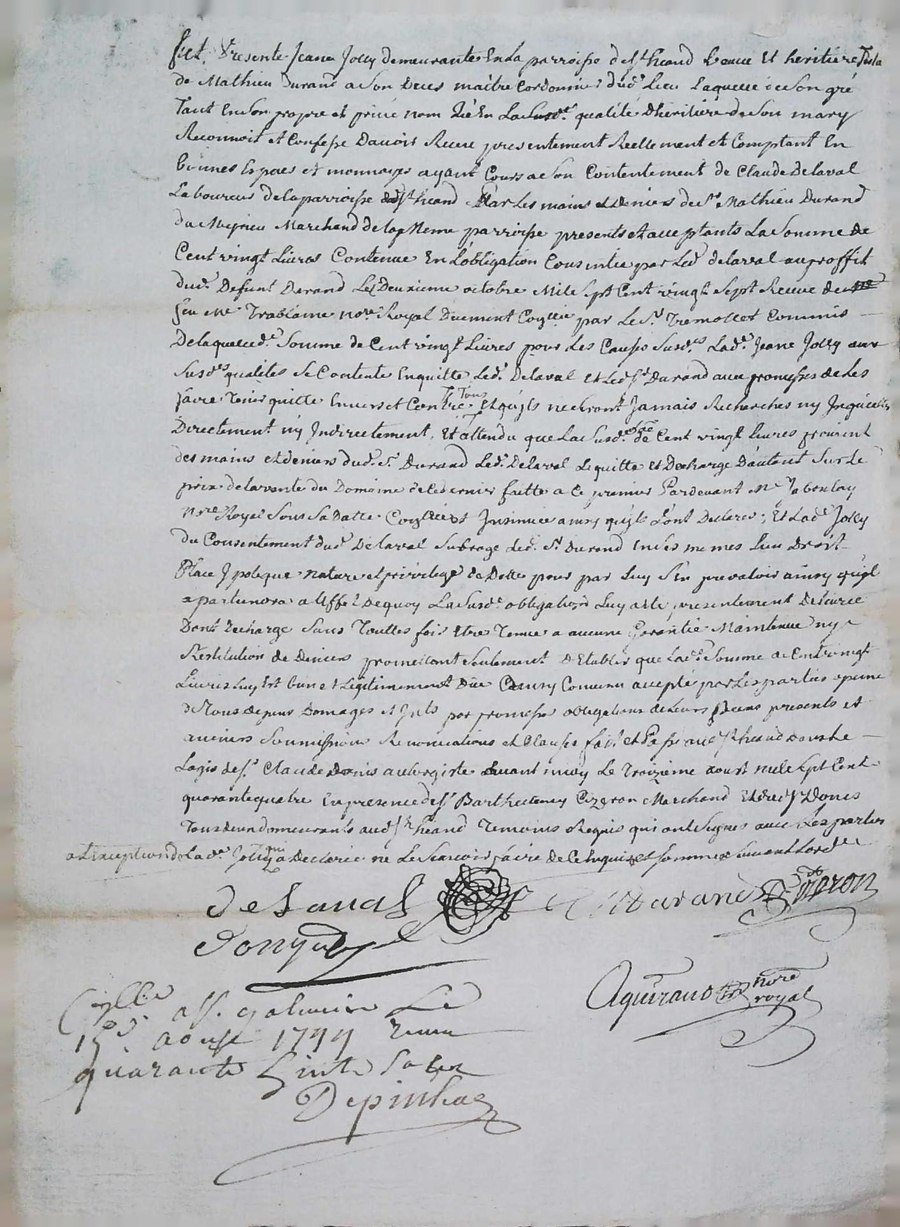 fut Presente Jeane Jolly demeurante En la parroisse de St heand Veuve Et heritiere Testa
de Mathieu Durand a Son Deces maitre Cordonnier dud. Lieu Laquelle de Son gré
Tant En Son propre et privé nom Qu'En La Susde. qualité D'heritiere de Son mary
Reconnoit et Confesse D'avoir Receu presentement Reellement et Comptant En
bonnes Especes et monnoyes ayant Cours a Son Contentement de Claude Delaval
Laboureur de la parroisse de St heand Par Les mains et deniers de Sr. Mathieu Durand
du Marchand de la Meme parroisse presents et acceptants La Somme de
Cent vingt Livres Contenue En L'obligation Consentie par Led. delaval au proffit
dud. Defunt Durand Le Deuxieme octobre Mil Sept Cent vingt Sept Receue de
feu Me nore. Royal Duement par Le Sr. Tremollet Commis
De laquelle de. Somme de Cent vingt Livres pour Les Causes Susdes Lade. Jeane Jolly aux
Susdes qualités Se Contente En quitte Led. Delaval Et Led. Sr Durand avec promesses de Les
faire Tenir quitte Envers et Contre Tous Et qu'ils ne Seront Jamais Recherchés ny Inquietés
Directement ny Indirectement, Et attendu que La Susde. Sme de Cent vingt Livres provient
des mains et deniers dud. Sr. Durand Led. Delaval Le quitte Et Decharge D'autant Sur Le
prix de la vente du Domaine de Ce dernier faitte a Ce premier Pardevant Me Jaboulay
Nore Royal Sous Sa Datte Insinuée ainsy qu'ils L'ont Declaré; Et Lade Jolly
du Consentement dud. Delaval Subroge Led. Sr. Durand En Ses memes Lieu Droit
Place Ypoteque nature et privilege de Dette pour par Luy S'En prevaloir ainsy qu'il
apartiendra a L'effet Dequoy La Susde. obligation Luy a été presentement Delivrée
Dont decharge Sans Touttes fois Etre Tenue a aucune Garantie Maintenue ny
Restitution de Deniers promettant Seulement D'Etablir que Lade. Somme de Cent vingt
Livres Luy Est bien et Legitimement Due Ainsy Convenu accepté par Les parties a peine
de Tous Depens Domages et Jnts. par promesse obligations de Leurs Biens presents et
avenirs Soumissions Renonciations et Clauses fait et Passé aud. St heand dans Le
Logis de Sr. Claude Donis aubergiste avant midy Le Treizieme aoust mil Sept Cent
quarante quatre En presence de Sr Barthelemy Cizeron Marchand Et dud. Sr Donis
Tous deux demeurants aud. St heand Temoins Requis qui ont Signés avec Les parties
a L'exception de Lade. Jolly qui a Declaré ne Le Scavoir faire de Ce Enquise et Sommée Suivant L'orde
delaval Durand Cizeron
donis
Aguiraud nore royal
a St. galmier Le
15e. aoust 1744 Receu
quarante
Depinhac